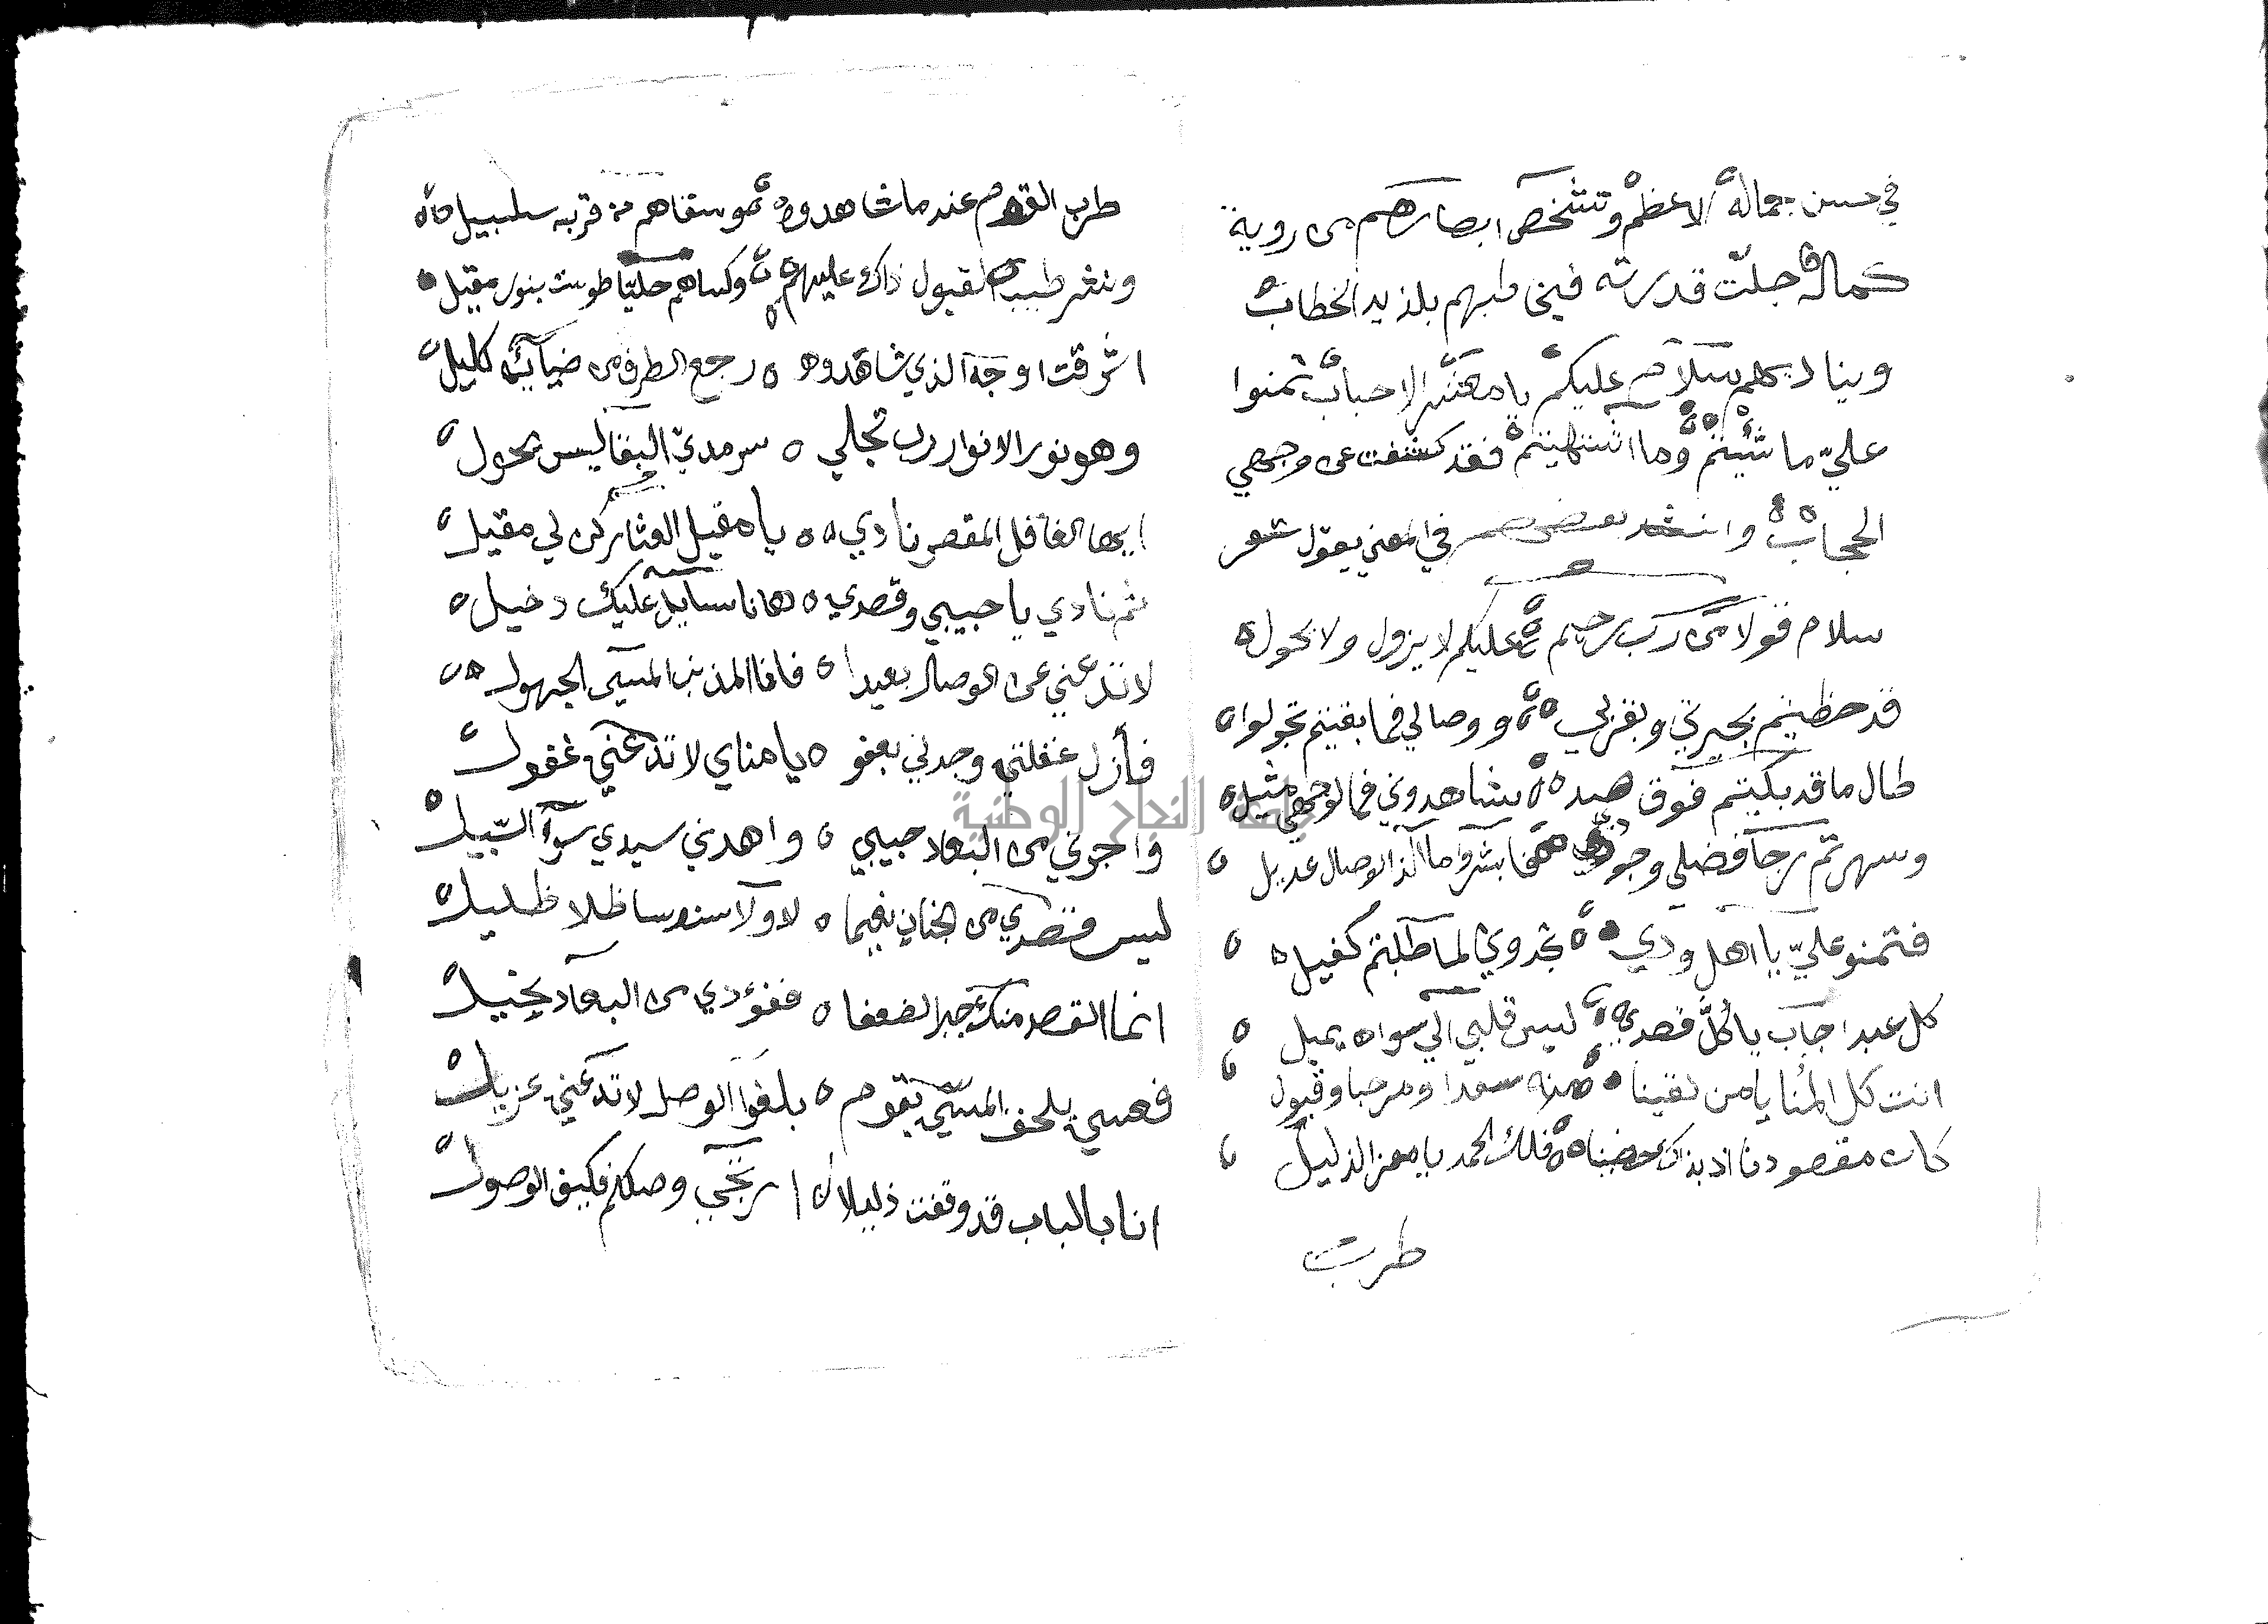 في حسن جماله الاعظم وتشخص ابصارهم من روية
كماله جلّت قدرته فيخاطبهم بلذيذ الخطاب
ويناديهم سلام عليكم يا معشر الاحباب تمنوا
عليّ ما شئتم وما اشتهيتم فقد كشفت عن وجهي
الحجاب وانشد بعضهم في المعني يقول شعر
سلام قولا من رب رحيم عليكم لا يزول ولا يحول
قد حظيتم بجيرتي وبقربي ووصالي فما بقيتم تحولوا
طال ما قد بكيتم فوق شاهدوني فما لوجهي مثيل
وسهرتم رجا فضلي وجودي فابشروا ما لذا الوصال عديل
فتمنو عليّ يا اهل ودي تجدوني لما طلبتم كفيل
كل عبد اجاب يا كلّ قصدي ليس قلبي الي سواه يميل
انت كل المُنا يا من لقينا منه سعدا ومرحبا وقبول
كان مقصودنا اذ بذاك فلك الحمد يا معز الذليل
طرب
طرب القوم عند ما شاهدوه وسقاهم من قربه سلسبيل
ونشر طيب القبول ذاك عليهم وكساهم حليّا طوست بنور مقيل
اشرقت اوجه الذي شاهدوه رجع الطرف من ضيائه كليل
وهو نور الانوار رب تجلي سرمديّ البقا ليس يحول
ايها الغافل المقصر نادي يا مقيل العثار كن لي مقيل
ثم نادي يا حبيبي وقصدي ها انا سايل عليك دخيل
لا تدعني عن الوصال بعيدا فانا المذنب المسي الجهول
فأزل غفلتي وجد لي بعفو يا مناي لا تدعني غفول
واجرني من البعاد حبيبي واهدني سيدي سوآ السّبيل
ليس قصدي من الجنان نعيما لا ولا سندسا ظلا ظليل
انما القصد منك جبر الضعفا ففؤدي من البعاد نحيل
فعسي يلحق المسيّ بقوم بلغوا الوصل لا تدعني عزيل
انا بالباب قد وقفت ذليلا ارتجي وصلكم فكيف الوصول
جامعة النجاح الوطنية